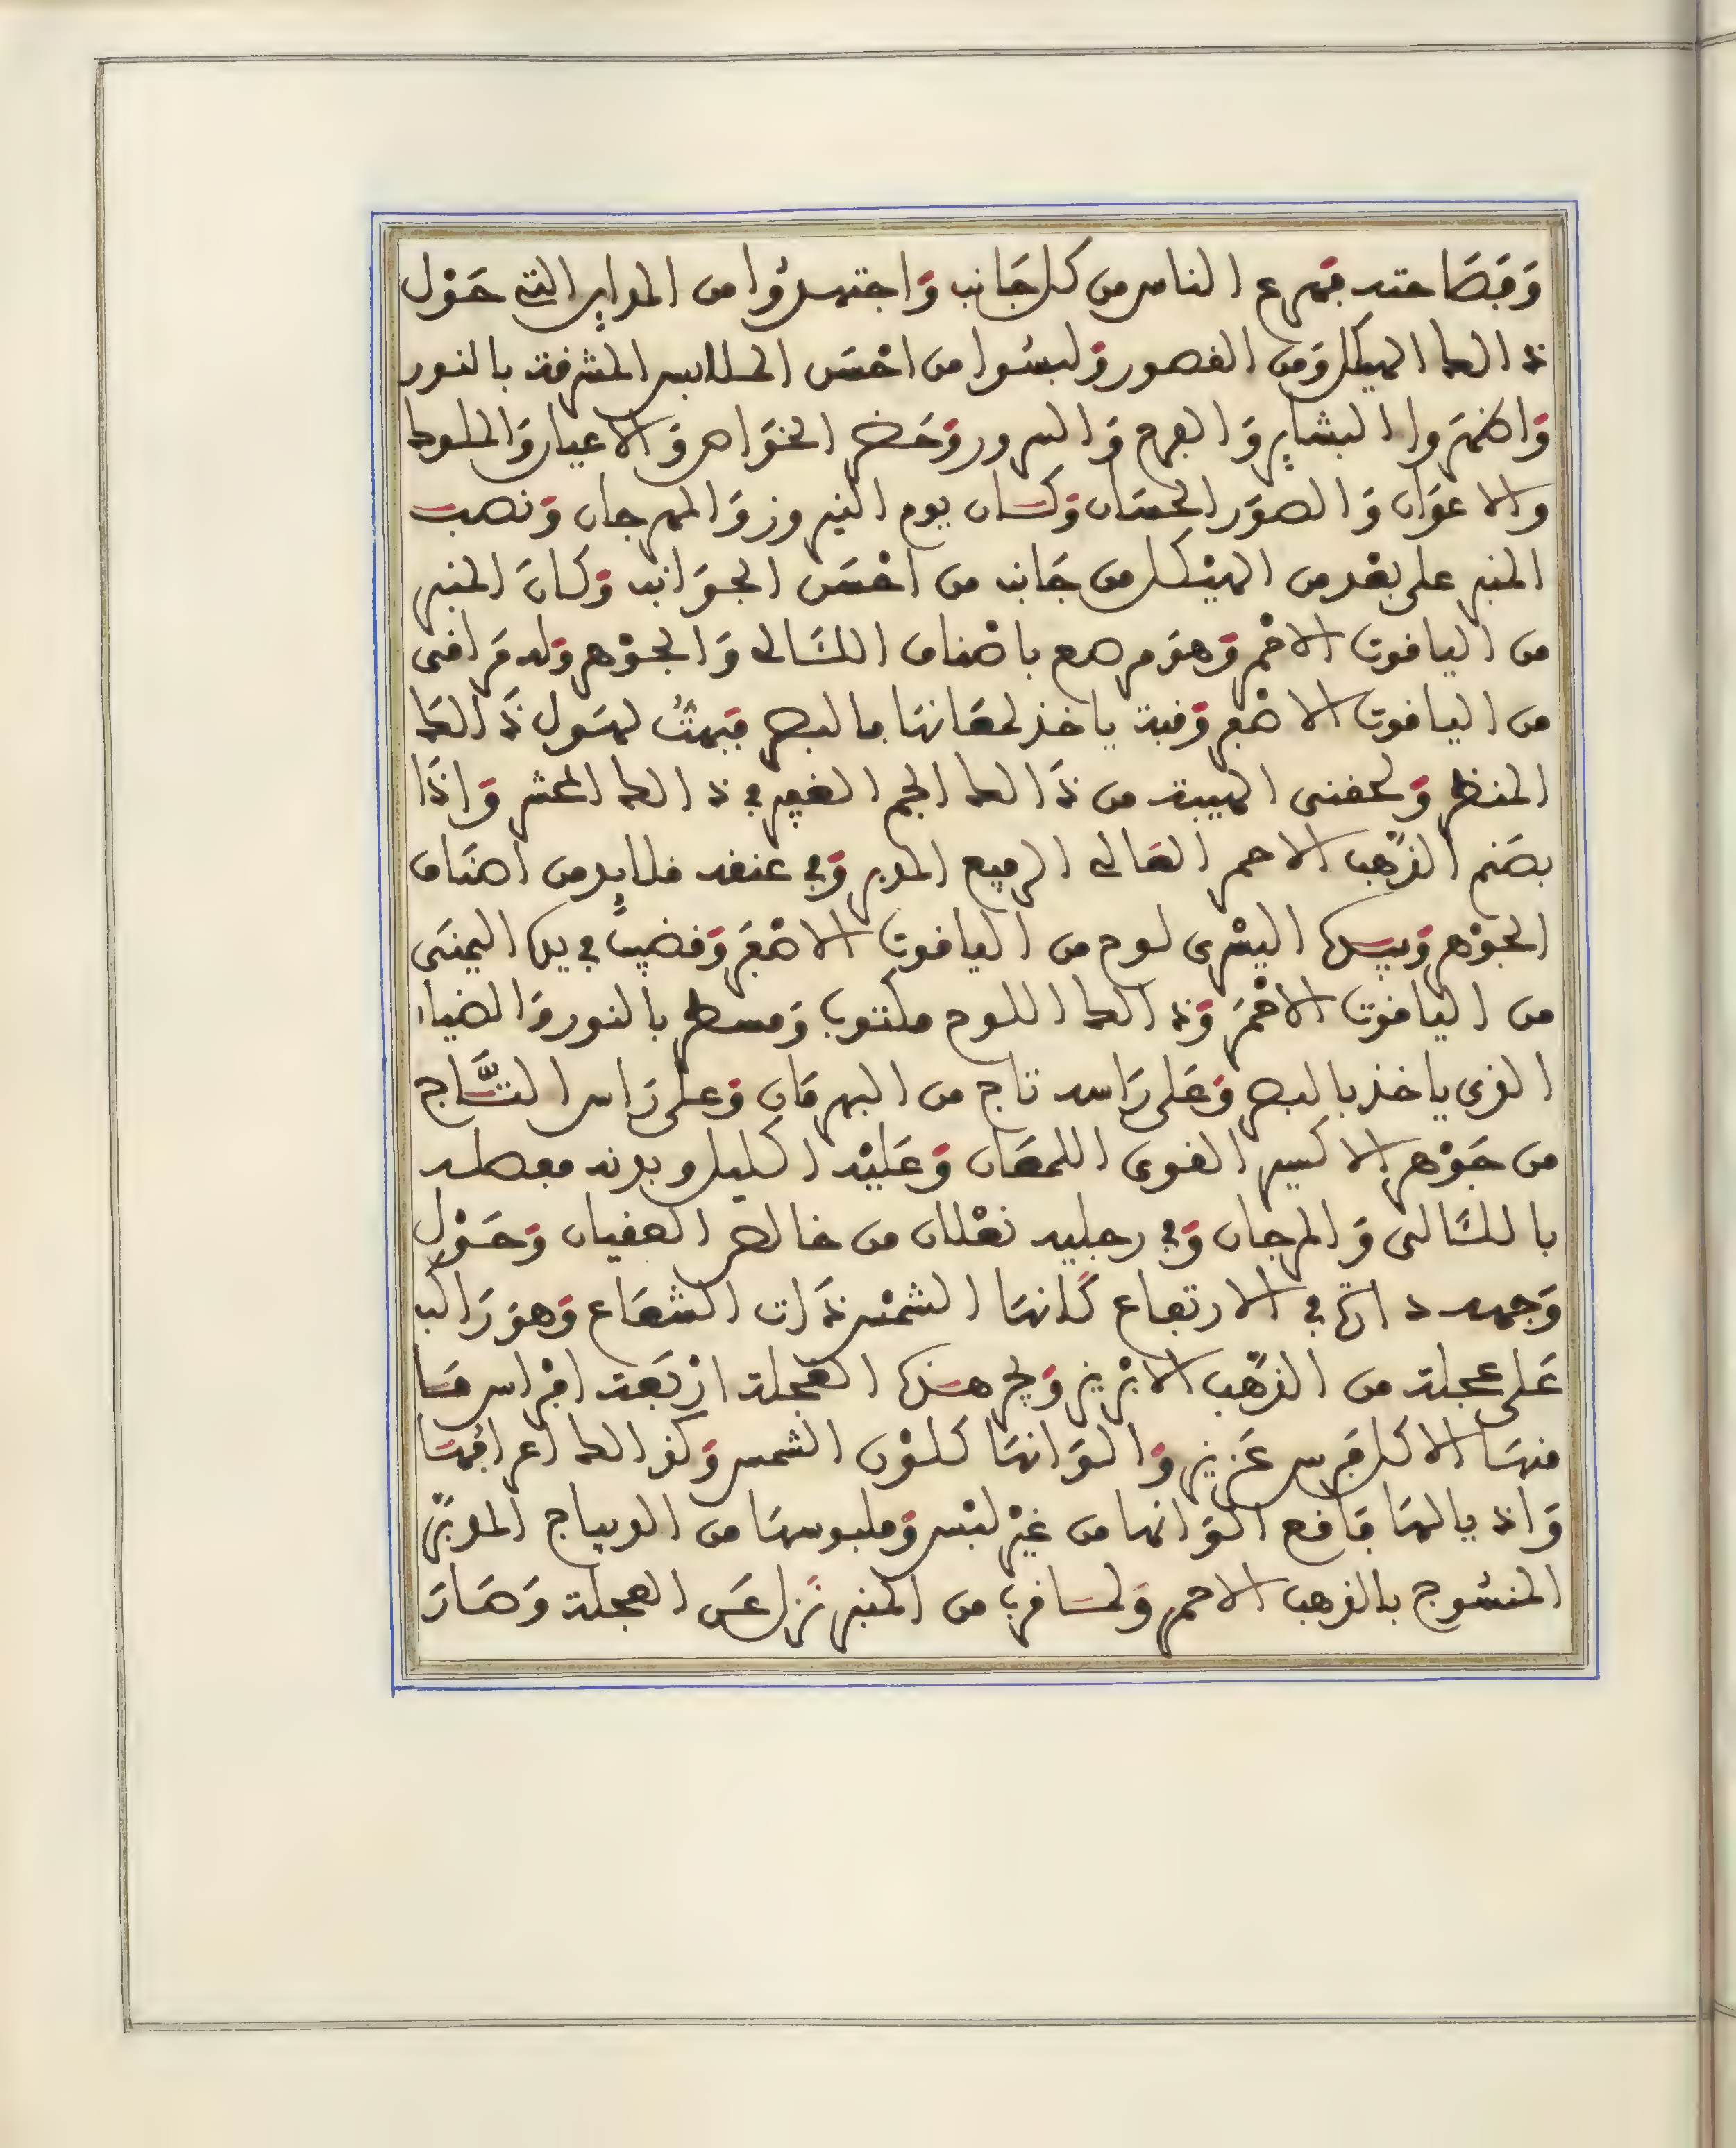 وَفَصَاحته فهرع الناس من كل جَانب وَاجتمعُوا من المداين التي حَوْل
ذالك الهيكل وَمن القصور وَلبسُوا من احْسَن الملابس المشرقة بالنور
وَاظهرَوا البشاير وَالفرح وَالسرور وَحَضر الخوَاص وَالاعيان وَالملوك
والاعوَان وَالصوَر الحسَان وَكَان يوم النيروز وَالمهرجان وَنصب
المنبر على بعْد من الهيْكل من جَانب من احْسَن الجوَانب وَكَانَ المنبر
من الياقوت الاحْمر وَهوَ مرصع باصْناف اللئَالى وَالجوْهر وَله مَراقى
من الياقوت الاصْفر وَقبة ياخذ لمعَانهَا بالبصر فبهتُّ لهَول ذَالكَ
المنظر وَلحقتنى الهيبة من ذَالك الجم الغفير في ذالك المحشر وَاذَا
بصَنم الذهَب الاحمر العَالى الرفيع المدبر وَفي عنقه قلايد من اصنَاف
الجوْهر وَبيَده اليسْرى لوح من الياقوت الاصْفرَ وَقضيبٌ في يده اليمنَى
من الياقوت الاحْمرَ وَذالك اللوح مكتوب وَمسطر بالنور وَالضياء
الذى ياخذ بالبصر وَعَلى رَاسه تاج من البهرمَان وَعلى رَاس التَّاج
من جَوْهر الاكسير القوى اللمعَان وَعَليْه اكليل وبدنه مفصله
باللئَالى وَالمرجان وَفي رجليه نعْلان من خالص العقيان وَحَوْل
وَجهه دائرة في الارتفاع كَانهَا الشمْس ذَات الشعَاع وَهوَ رَاكب
عَلى عجلة من الذهَب الابْريز وَيجر هَذه العجَلة ارْبَعة افْرَاس مَا
منهَا الا كل فَرس عَزيز وَالوَانهَا كلوْن الشمس وَكذالك اعرافهَا
وَاذيالهَا فَاقع الوَانها من غيْر لبْس وَملبوسهَا من الديباج المدبَّر
المنسُوج بالذهب الاحمر وَلمَا قرب من المنبر نزَل عَن العجلة وَصَارَ